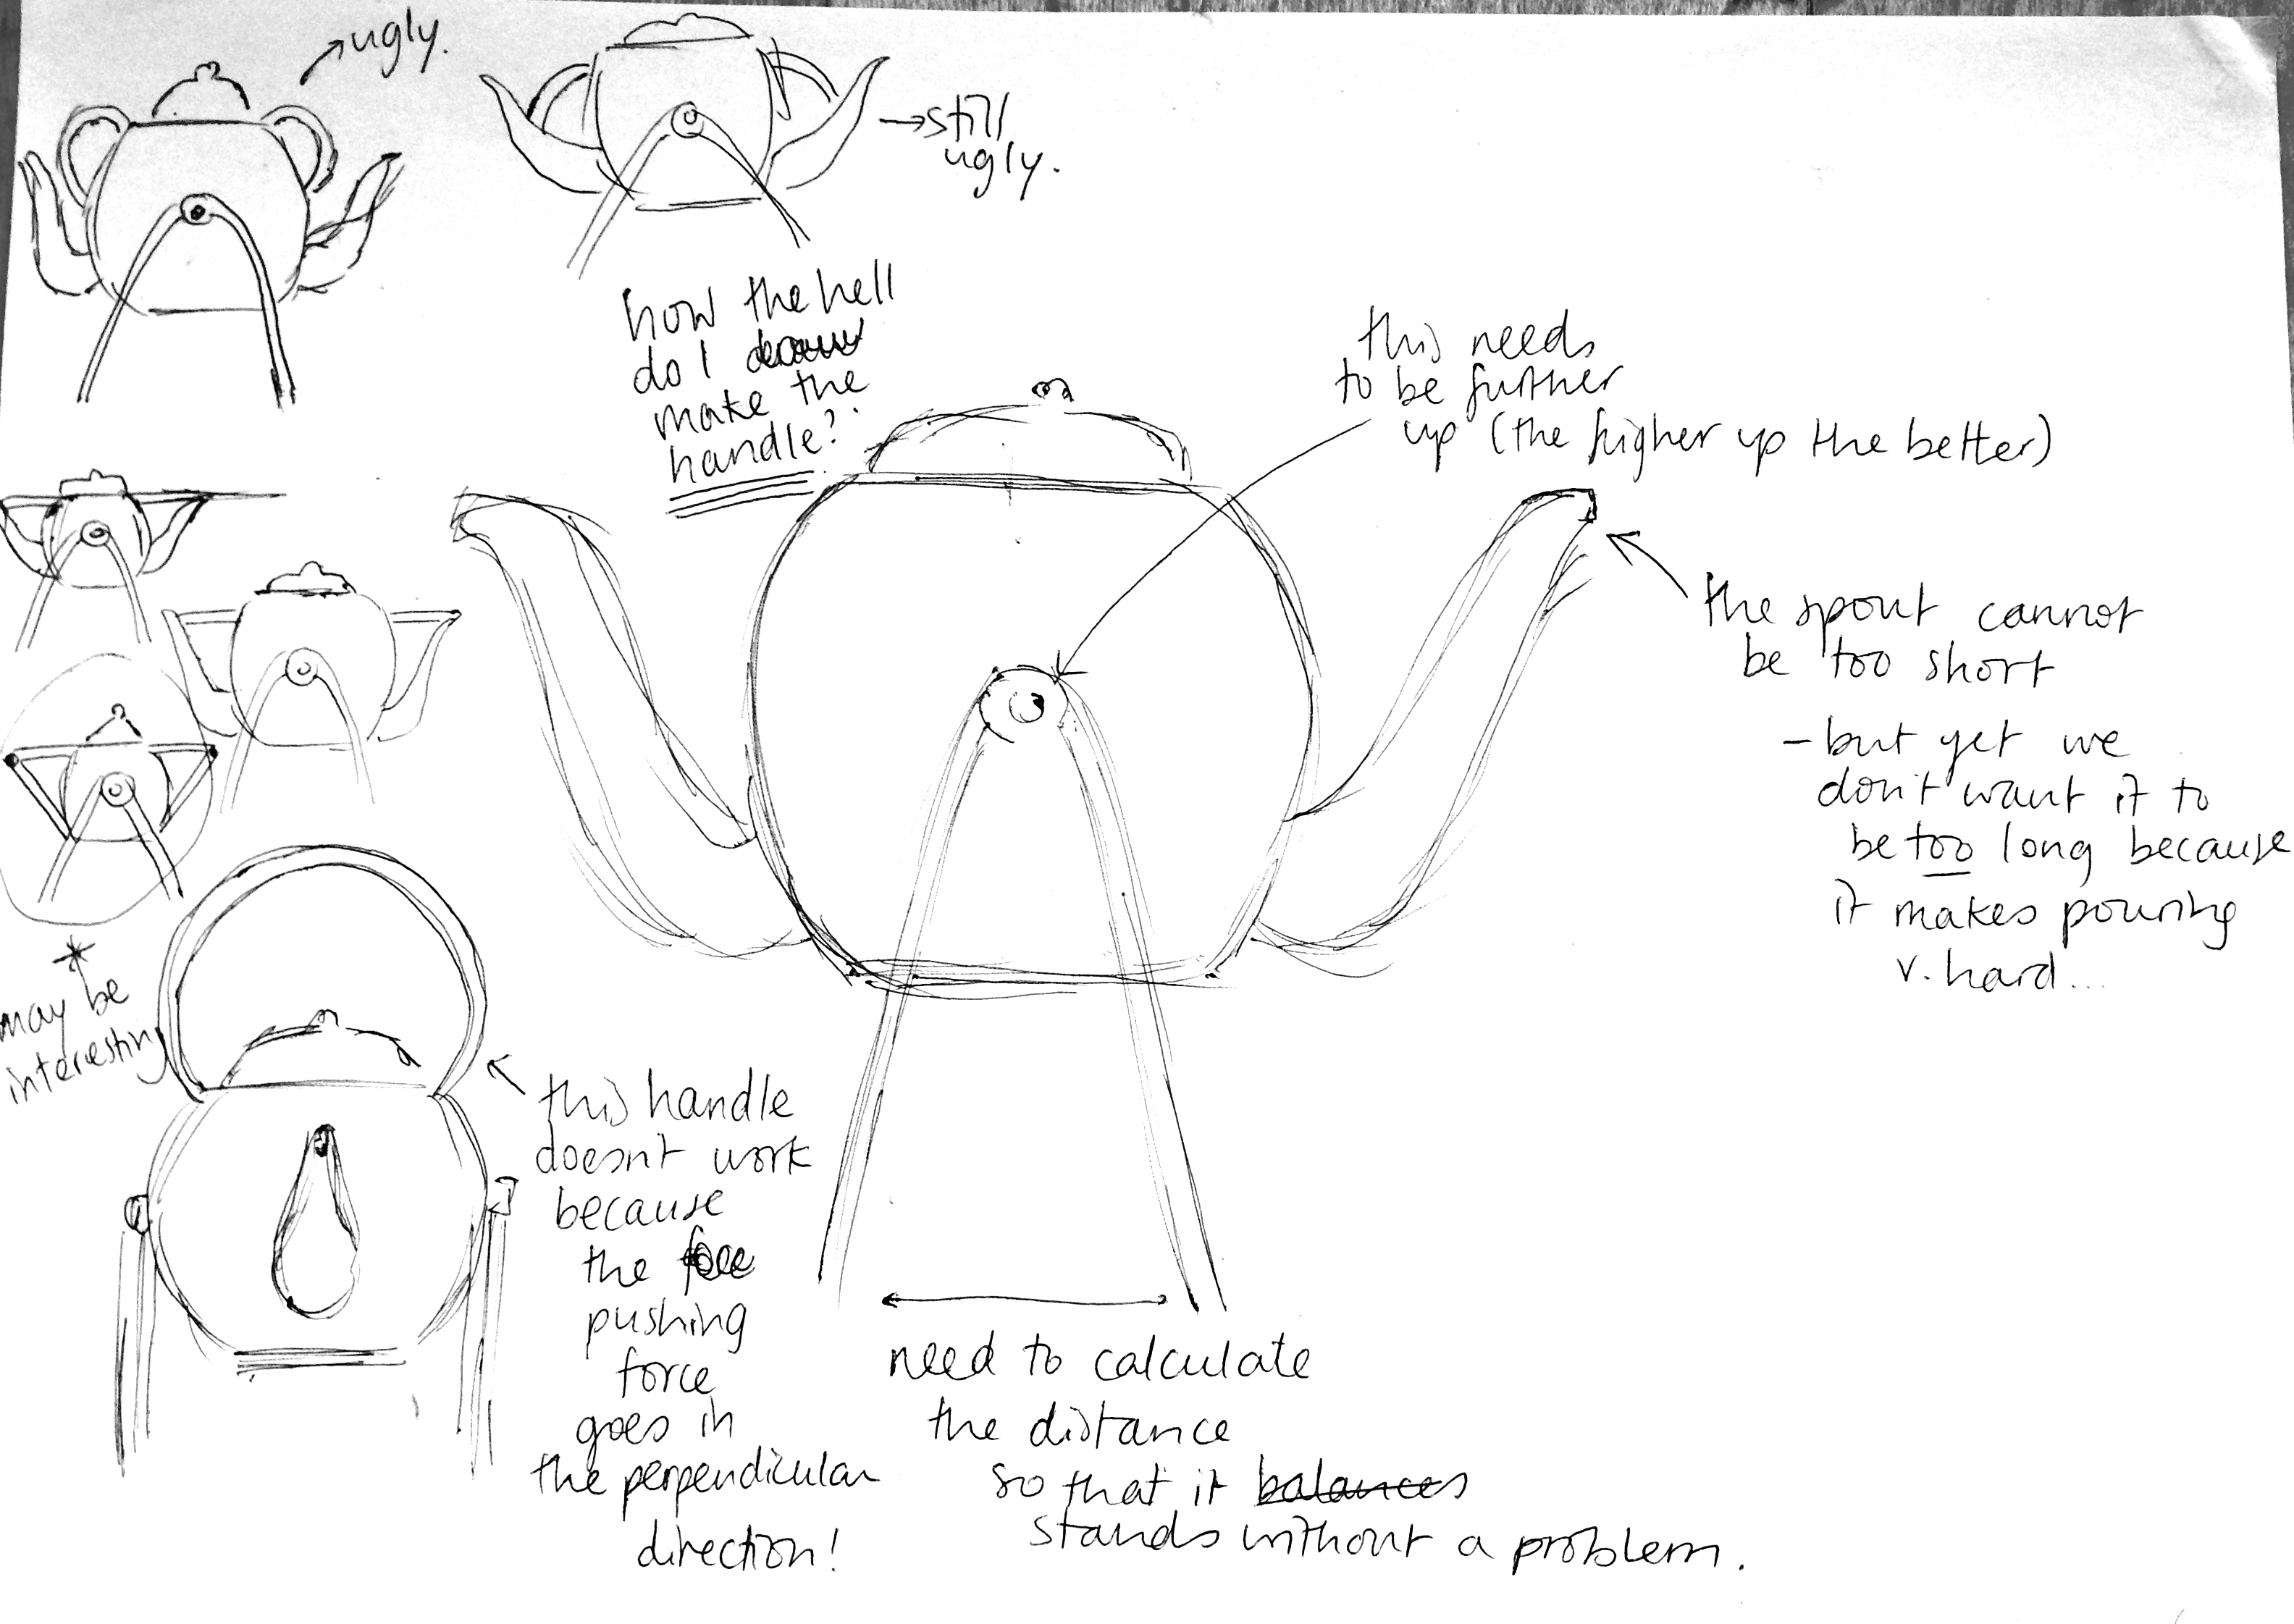 ugly.
still
ugly.
how the hell
do I draw
make the
handle?
this needs
to be further
up (the higher up the better)
the spout cannot
be too short
- but yet we
don't want it to
be too long because
it makes pouring
v. hard...
may be
interesting
this handle
doesn't work
because
the
pushing
force
goes in
the perpendicular
direction!
need to calculate
the distance
so that it balances
stands without a problem.